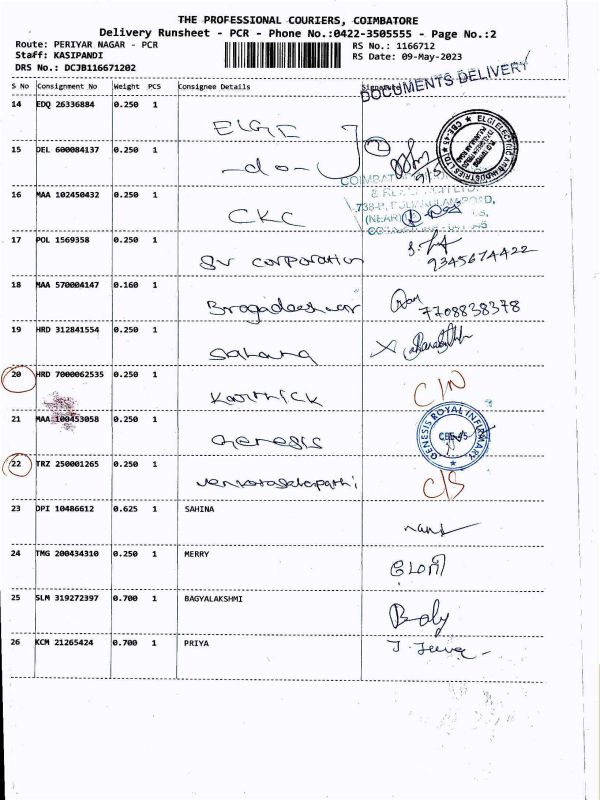 THE PROFESSIONAL COURIERS, COIMBATORE
Delivery Runsheet - PCR - Phone No.:0422-3505555 - Page No.:2
Route: PERIYAR NAGAR - PCR
RS No.: 1166712
Staff: KASIPANDI
RS Date: 09-May-2023
DRS No.: DCJB116671202
DOCUMENTS DELIVERY
S No Consignment No Weight PCS Consignee Details Signature
14 EDQ 26336884 0.250 1 ELGI
15 DEL 600084137 0.250 1 -do-
16 MAA 102450432 0.250 1 CKC
17 POL 1569358 0.250 1 SV corporation 9345674422
18 MAA 570004147 0.160 1 Bragadeeshwar 7708838378
19 HRD 312841554 0.250 1 Sahana
20 HRD 7000062535 0.250 1 Karthick C/N
21 MAA 100453058 0.250 1 Genesis
GENESIS ROYAL INFIRMARY
22 TRZ 250001265 0.250 1 C/S
23 DPI 10486612 0.625 1 SAHINA
24 TMG 200434310 0.250 1 MERRY
25 SLM 319272397 0.700 1 BAGYALAKSHMI
26 KCM 21265424 0.700 1 PRIYA